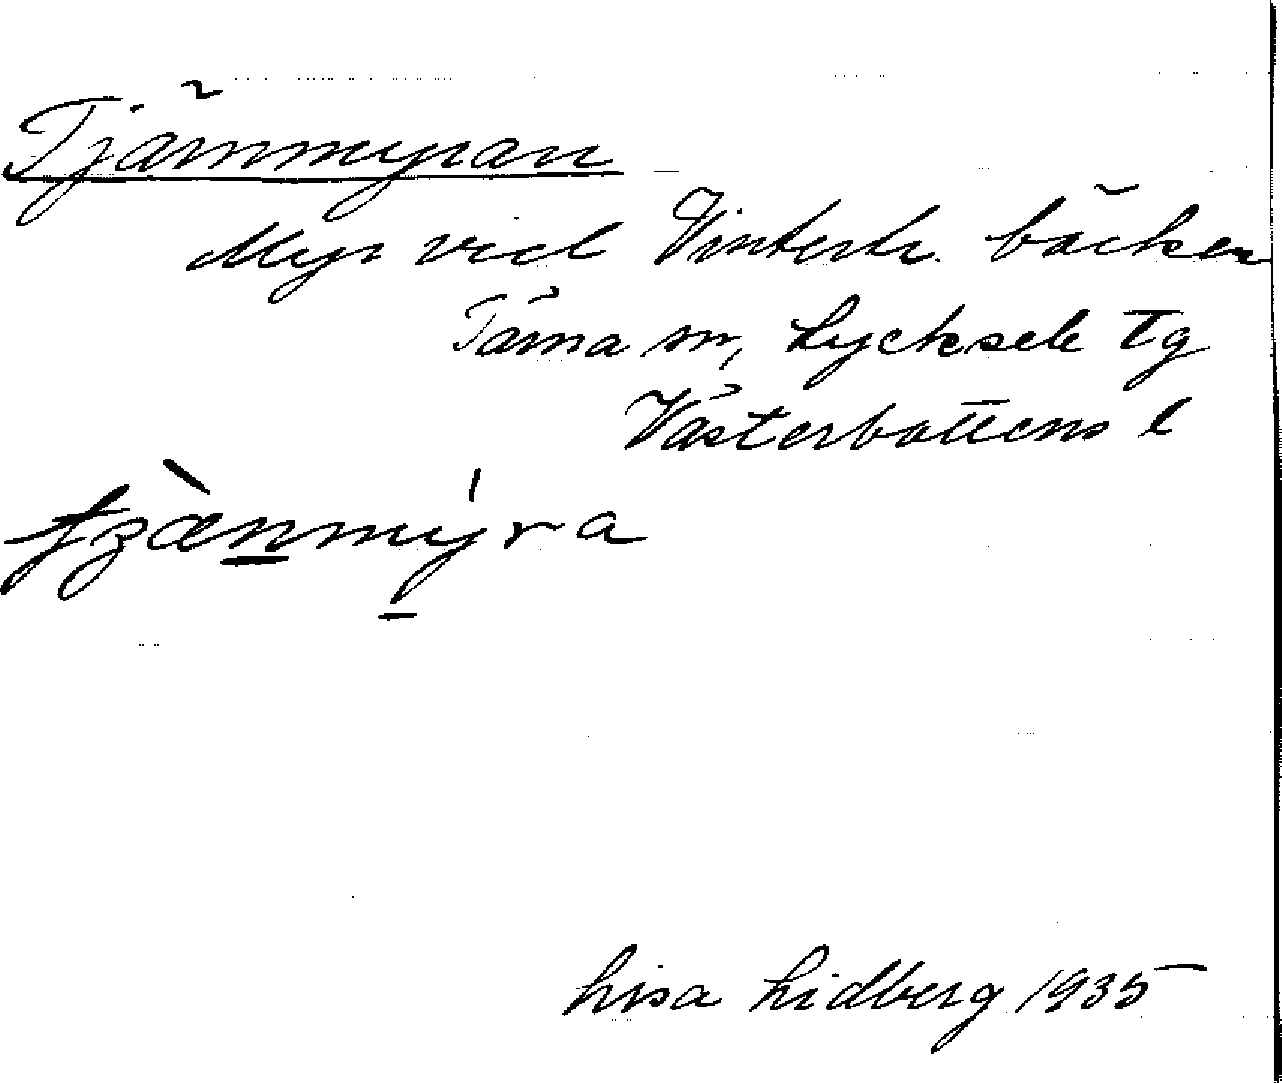 Tjärnmyran
Myr vid Vinterb. bäcken
Tärna sn, Lycksele Tg
Västerbottens l
Lisa Lidberg 1935